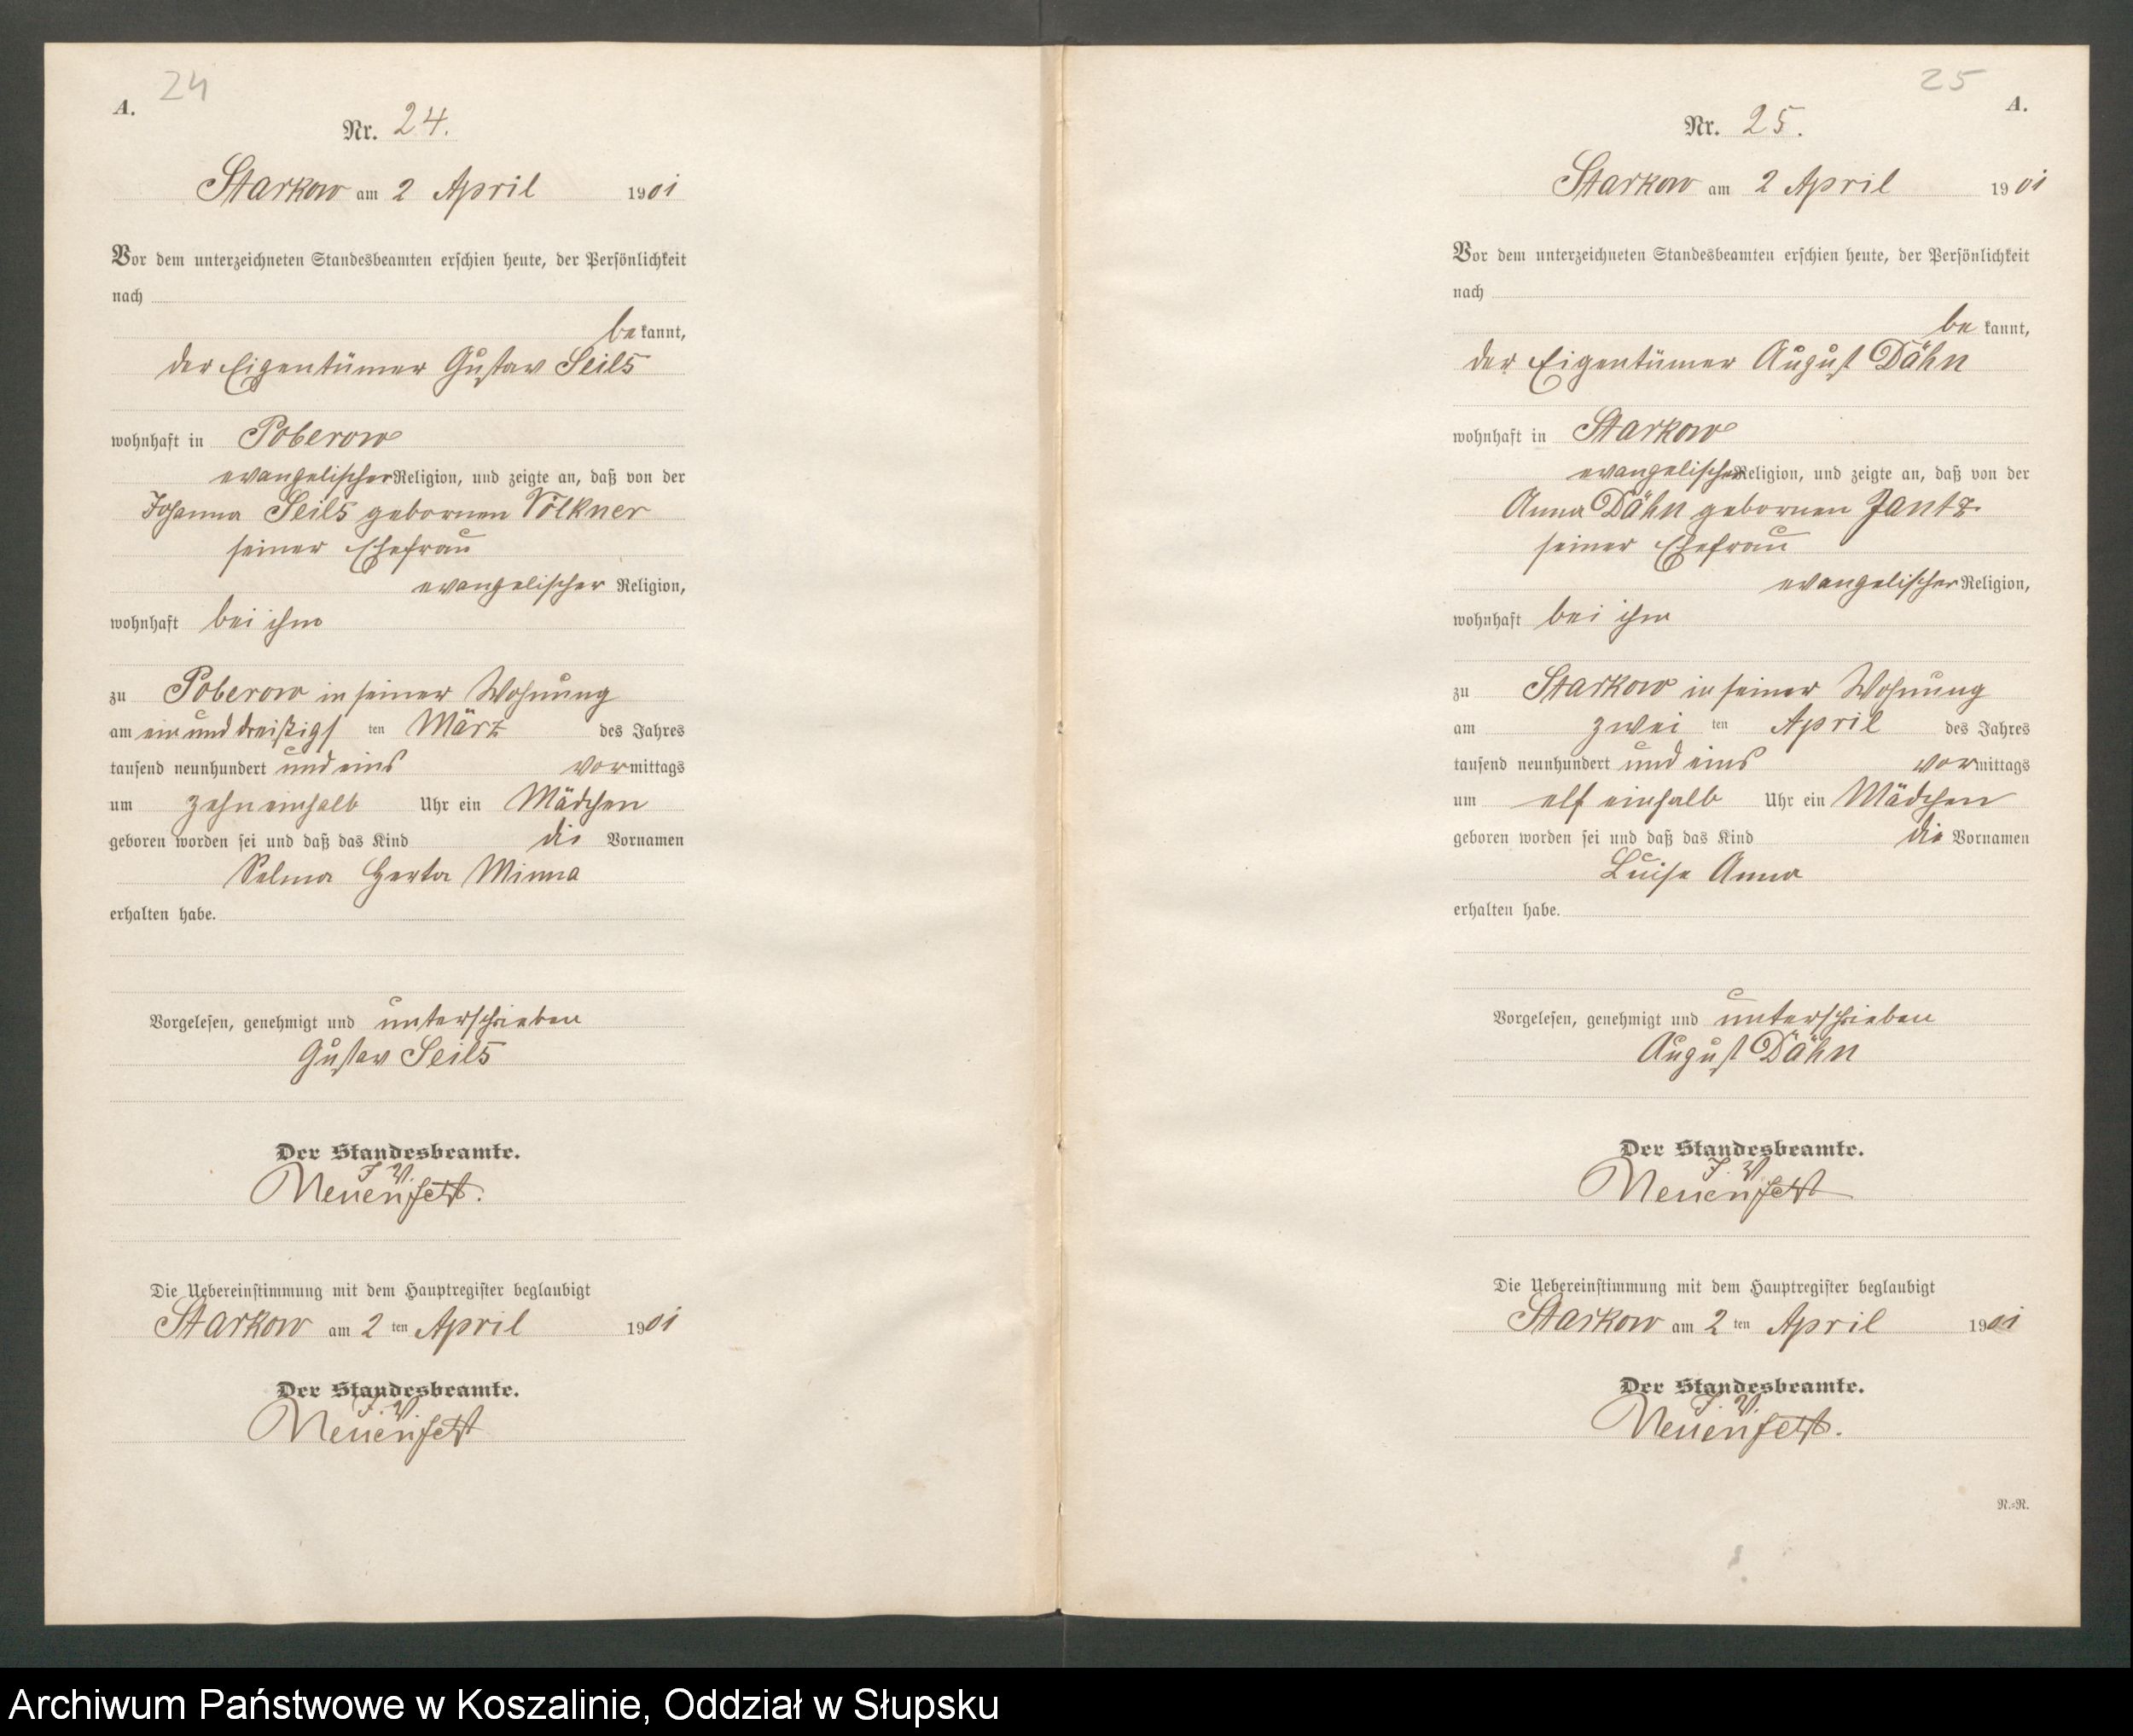 24
A.
Nr. 24.
Starkow am 2 April 1901
Vor dem unterzeichneten Standesbeamten erschien heute, der Persönlichkeit
nach
be kannt,
der Eigentümer Gustav Seils
wohnhaft in Poberow
evangelischer Religion, und zeigte an, daß von der
Johanna Seils gebornen Völkner
seiner Ehefrau
evangelischer Religion,
wohnhaft bei ihm
zu Poberow in seiner Wohnung
am ein und dreißigs ten März des Jahres
tausend neunhundert und eins vormittags
um zehn einhalb Uhr ein Mädchen
geboren worden sei und daß das Kind die Vornamen
Selma Herta Minna
erhalten habe.
Vorgelesen, genehmigt und unterschrieben
Gustav Seils
Der Standesbeamte.
J. V.
Neuenfeldt.
Die Uebereinstimmung mit dem Hauptregister beglaubigt
Starkow am 2 ten April 1901
Der Standesbeamte.
J. V.
Neuenfeldt
25
A.
Nr. 25.
Starkow am 2 April 1901
Vor dem unterzeichneten Standesbeamten erschien heute, der Persönlichkeit
nach
be kannt,
der Eigentümer August Dähn
wohnhaft in Starkow
evangelischer Religion, und zeigte an, daß von der
Anna Dähn gebornen Jantz
seiner Ehefrau
evangelischer Religion,
wohnhaft bei ihm
zu Starkow in seiner Wohnung
am zwei ten April des Jahres
tausend neunhundert und eins vormittags
um elf einhalb Uhr ein Mädchen
geboren worden sei und daß das Kind die Vornamen
Luise Anna
erhalten habe.
Vorgelesen, genehmigt und unterschrieben
August Dähn
Der Standesbeamte.
J. V.
Neuenfeldt
Die Uebereinstimmung mit dem Hauptregister beglaubigt
Starkow am 2 ten April 1901
Der Standesbeamte.
J. V.
Neuenfeldt.
N.=N.
Archiwum Państwowe w Koszalinie, Oddział w Słupsku